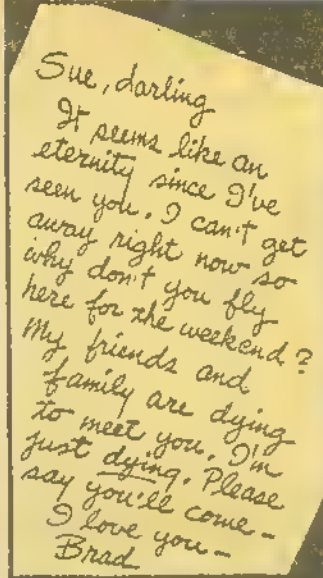 Sue, darling
It seems like an
eternity since I've
seen you. I can't get
away right now so
why don't you fly
here for the weekend?
My friends and
family are dying
to meet you. I'm
just dying. Please
say you'll come -
I love you -
Brad